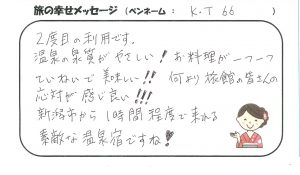 旅の幸せメッセージ (ペンネーム: K.T 66 )
2度目の利用です。
温泉の泉質がやさしい! お料理が一つ一つ
ていねいで美味しい!! 何より旅館の皆さんの
応対が感じ良い!!!
新潟市から1時間程度で来れる
素敵な温泉宿ですね!